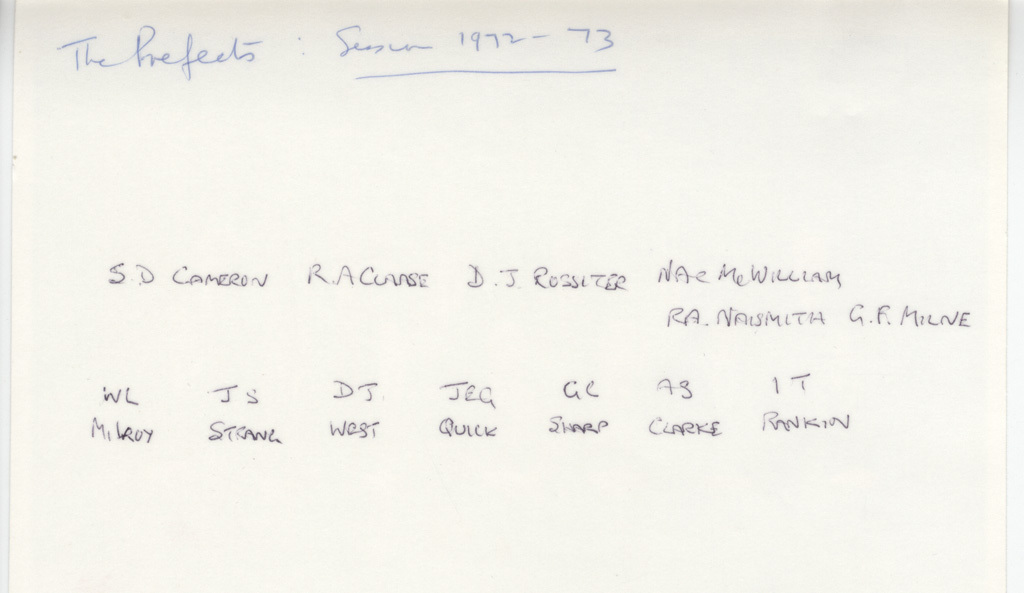 The Prefects : Session 1972-73
S.D CAMERON R.A CLAASE D.J. ROSSITER NAC McWILLIAM
RA. NAISMITH G.F. MILNE
WL JS DJ. JEG GC AB IT
MILROY STRANG WEST QUICK SHARP CLARKE RANKIN